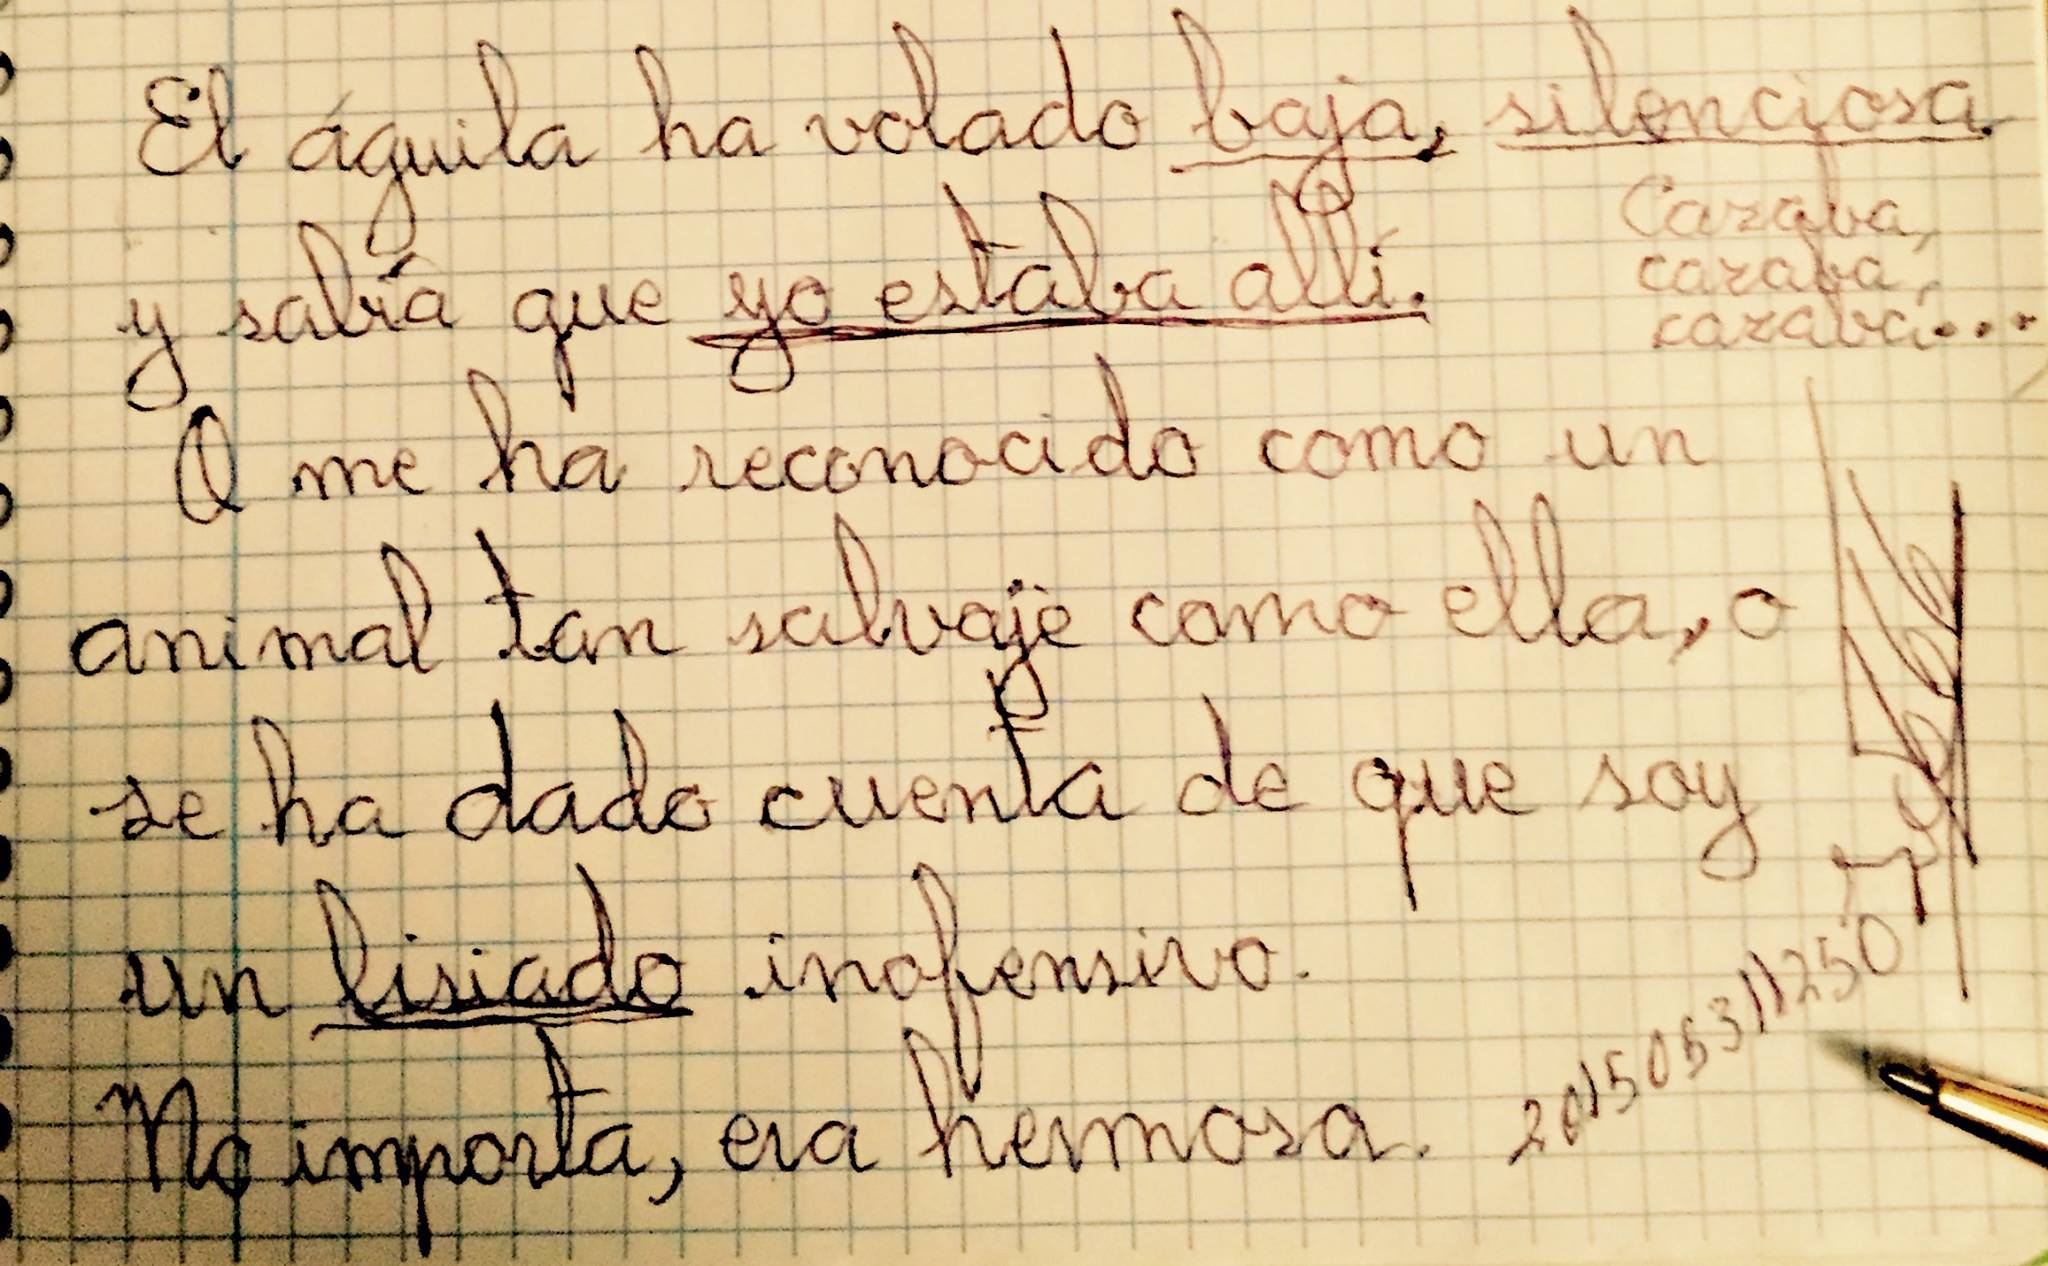 El águila ha volado baja, silenciosa
Cazaba,
cazaba,
cazaba...
y sabía que yo estaba allí.
O me ha reconocido como un
animal tan salvaje como ella, o
se ha dado cuenta de que soy
un lisiado inofensivo.
No importa, era hermosa.